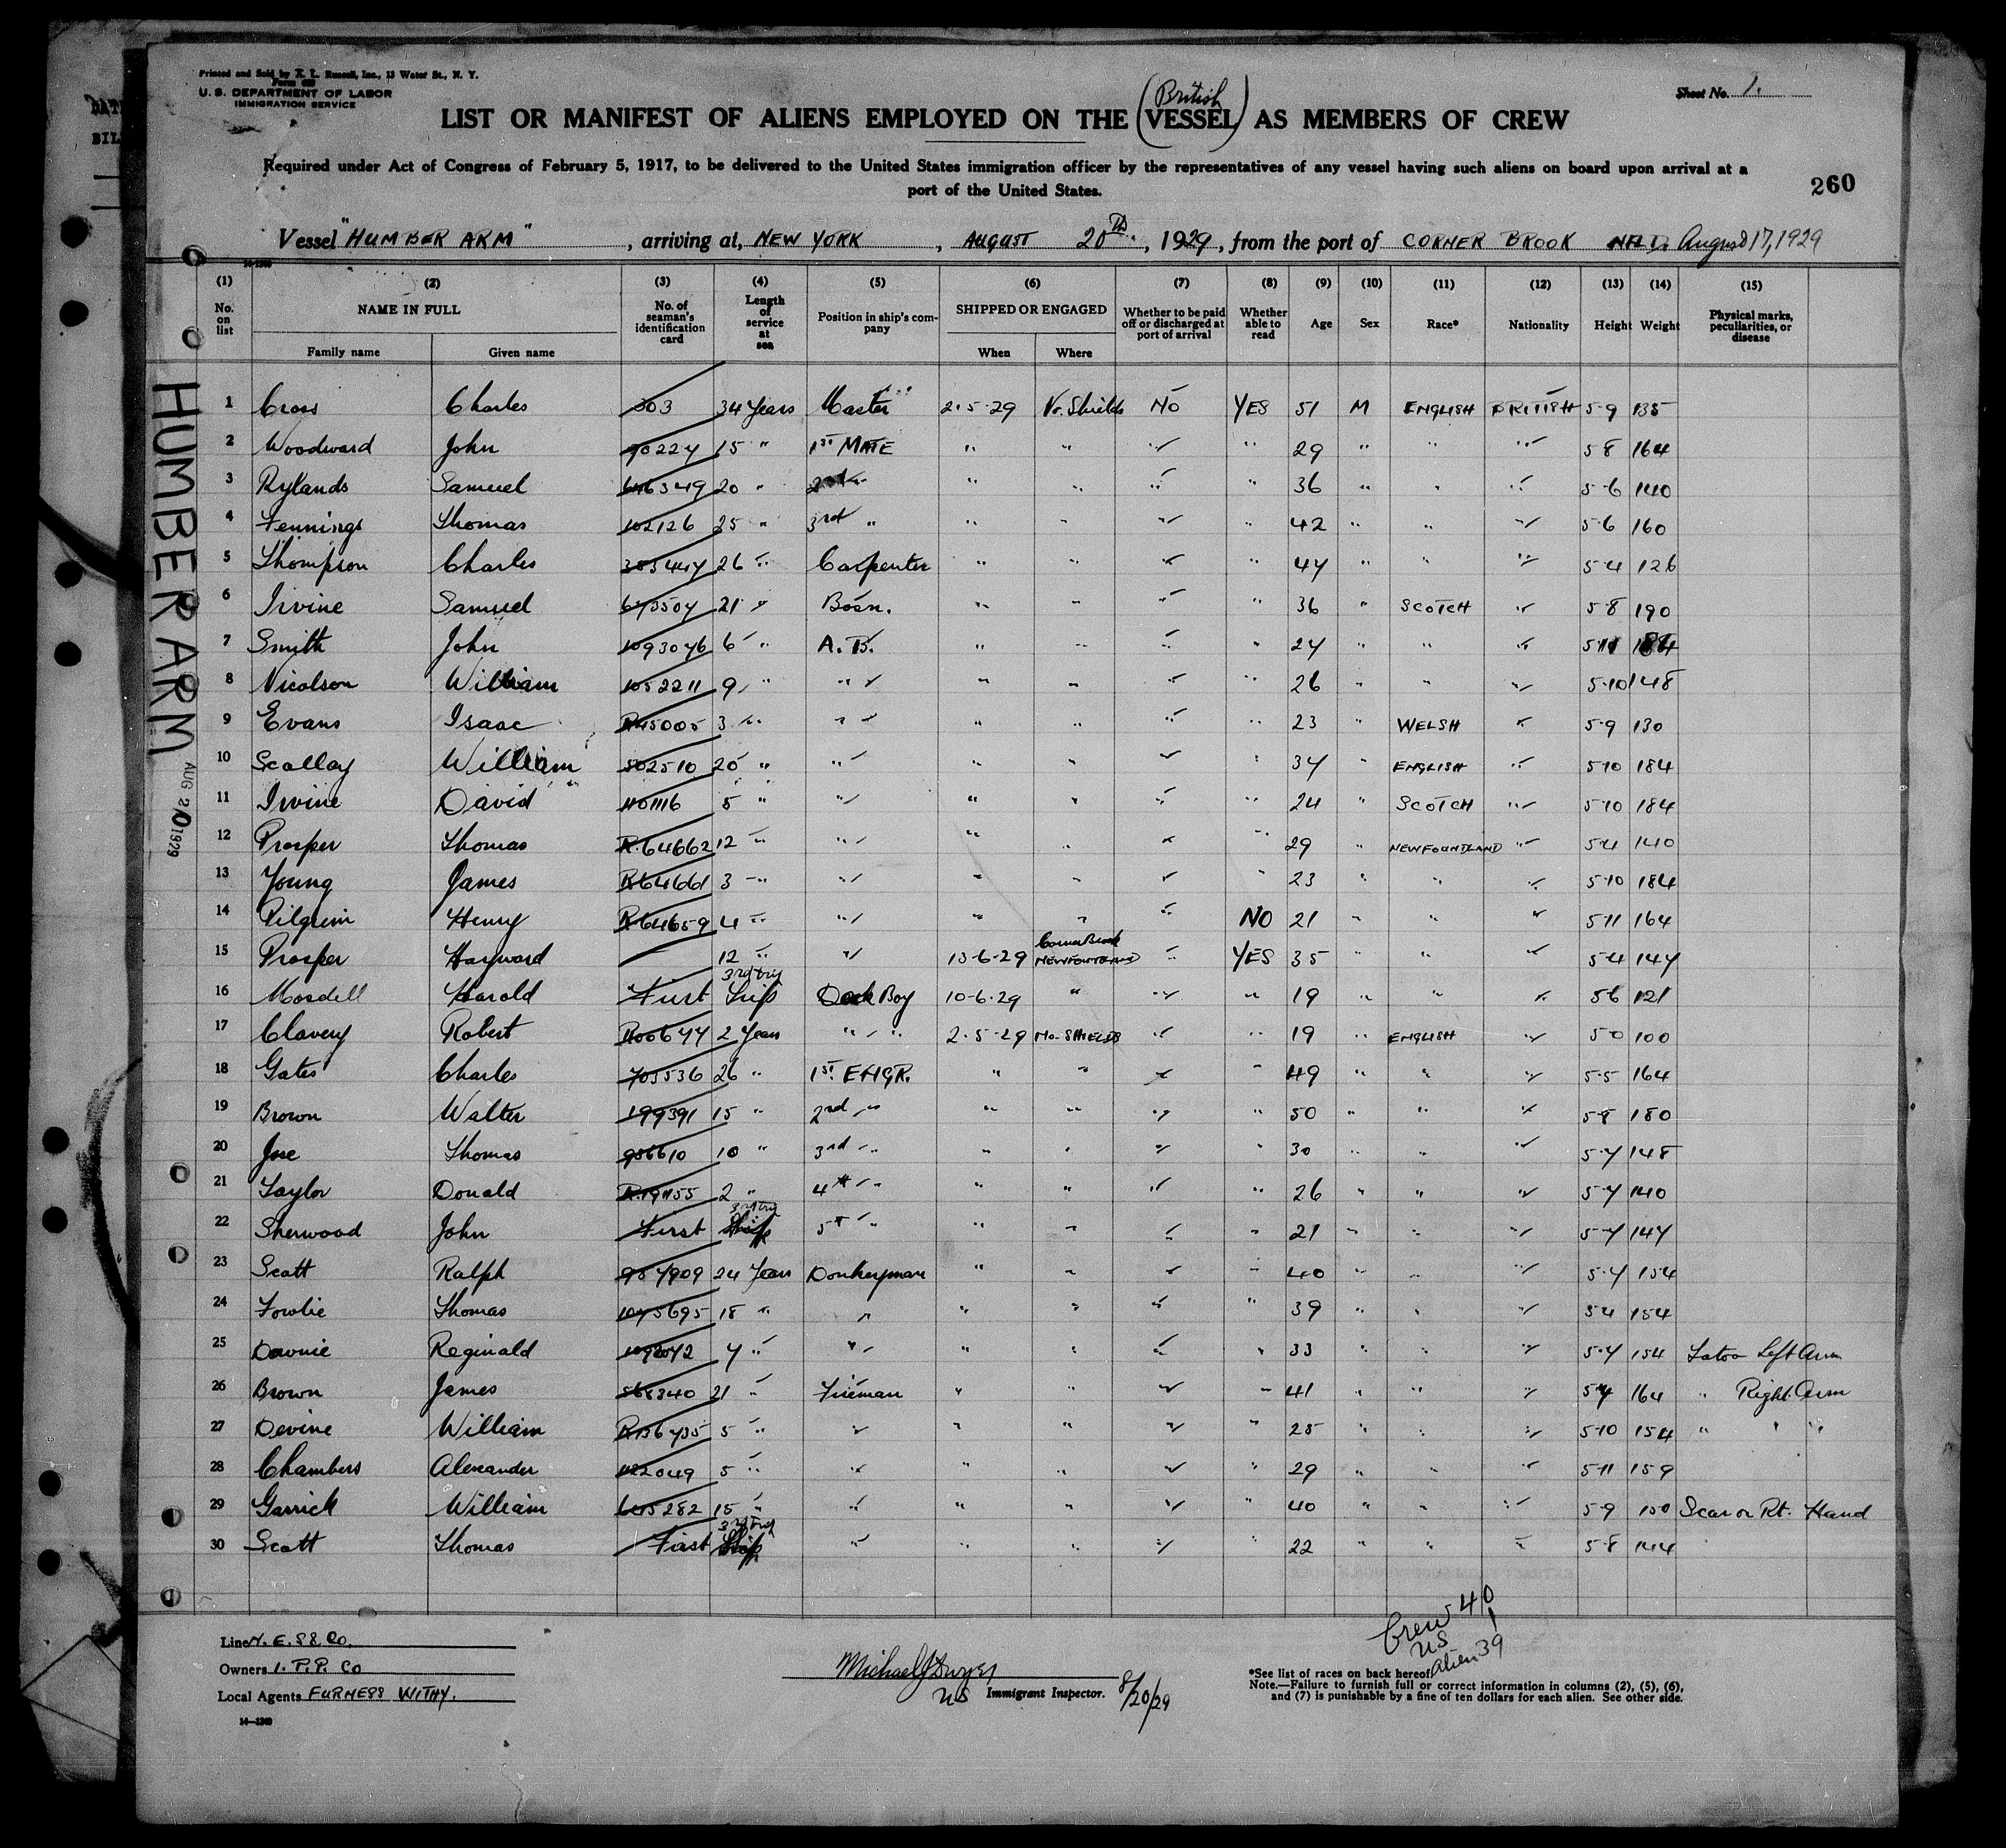 Printed and Sold by K. L. Russell, Inc., 13 Water St., N. Y.
U. S. DEPARTMENT OF LABOR
IMMIGRATION SERVICE
Sheet No. 1.
(British)
LIST OR MANIFEST OF ALIENS EMPLOYED ON THE VESSEL AS MEMBERS OF CREW
Required under Act of Congress of February 5, 1917, to be delivered to the United States immigration officer by the representatives of any vessel having such aliens on board upon arrival at a
port of the United States.
260
Vessel "HUMBER ARM", arriving at, NEW YORK, AUGUST 20th, 1929, from the port of CORNER BROOK NFLD. August 17, 1929
(1) (2) (3) (4) (5) (6) (7) (8) (9) (10) (11) (12) (13) (14) (15)
No. on list NAME IN FULL Family name Given name No. of seaman's identification card Length of service at sea Position in ship's company SHIPPED OR ENGAGED When Where Whether to be paid off or discharged at port of arrival Whether able to read Age Sex Race* Nationality Height Weight Physical marks, peculiarities, or disease
HUMBER ARM
AUG 20 1929
1 Cross Charles 303 34 Years Master 2-5-29 No. Shields NO YES 51 M ENGLISH BRITISH 5-9 135
2 Woodward John 90224 15 " 1st MATE " " " " 29 " " " 5-8 164
3 Rylands Samuel 20 " " " " " 36 " " " 5-6 140
4 Jennings Thomas 102126 25 " 3rd " " " " " 42 " " " 5-6 160
5 Thompson Charles 26 " Carpenter " " " " 47 " " " 5-4 126
6 Irvine Samuel 673507 21 " Bosn. " " " " 36 " SCOTCH " 5-8 190
7 Smith John 1093076 6 " A.B. " " " " 24 " " " 5-11
8 Nicolson William 1052211 9 " " " " " " 26 " " " 5-10 148
9 Evans Isaac 3 " " " " " " 23 " WELSH " 5-9 130
10 Scollay William 502510 20 " " " " " " 34 " ENGLISH " 5-10 184
11 Irvine David 5 " " " " " " 24 " SCOTCH " 5-10 184
12 Prosper Thomas R.64662 12 " " " " " " 29 " NEWFOUNDLAND " 5-4 140
13 Young James R64661 3 " " " " " " 23 " " " 5-10 184
14 Pilgrim Henry R64659 4 " " " " " NO 21 " " " 5-11 164
15 Prosper Hayward 12 " " 13-6-29 Corner Brook NEWFOUNDLAND " YES 35 " " " 5-4 147
16 Mosdell Harold First Ship 3rd trip Deck Boy 10-6-29 " " " 19 " " " 5-6 121
17 Clavery Robert 2 Years " " 2-5-29 No. SHIELDS " " 19 " ENGLISH " 5-0 100
18 Gates Charles 703536 26 " 1st. ENGR. " " " " 49 " " " 5-5 164
19 Brown Walter 199391 15 " 2nd " " " " " 50 " " " 5-8 180
20 Jose Thomas 986610 10 " 3rd " " " " " 30 " " " 5-7 148
21 Taylor Donald 2 " 4th " " " " " 26 " " " 5-7 140
22 Sherwood John First Ship 3rd trip 5th " " " " " 21 " " " 5-7 147
23 Scott Ralph 987909 24 Years Donkeyman " " " " 40 " " " 5-7 154
24 Fowlie Thomas 1075695 18 " " " " " " 39 " " " 5-4 154
25 Downie Reginald 7 " " " " " " 33 " " " 5-7 154 Tatoo Left Arm
26 Brown James 568340 21 " Fireman " " " " 41 " " " 5-7 164 " Right Arm
27 Devine William 5 " " " " " " 25 " " " 5-10 154 " " "
28 Chambers Alexander 5 " " " " " " 29 " " " 5-11 159
29 Garrick William 645282 15 " " " " " " 40 " " " 5-9 150 Scar on Rt. Hand
30 Scott Thomas First Ship 3rd trip " " " " " 22 " " " 5-8 144
Crew 40
US 1
Alien 39
Line N. E. SS Co.
Owners I. P. P. Co
Local Agents FURNESS WITHY.
14—1260
Michael J Dwyer
US Immigrant Inspector. 8/20/29
*See list of races on back hereof
Note.—Failure to furnish full or correct information in columns (2), (5), (6),
and (7) is punishable by a fine of ten dollars for each alien. See other side.